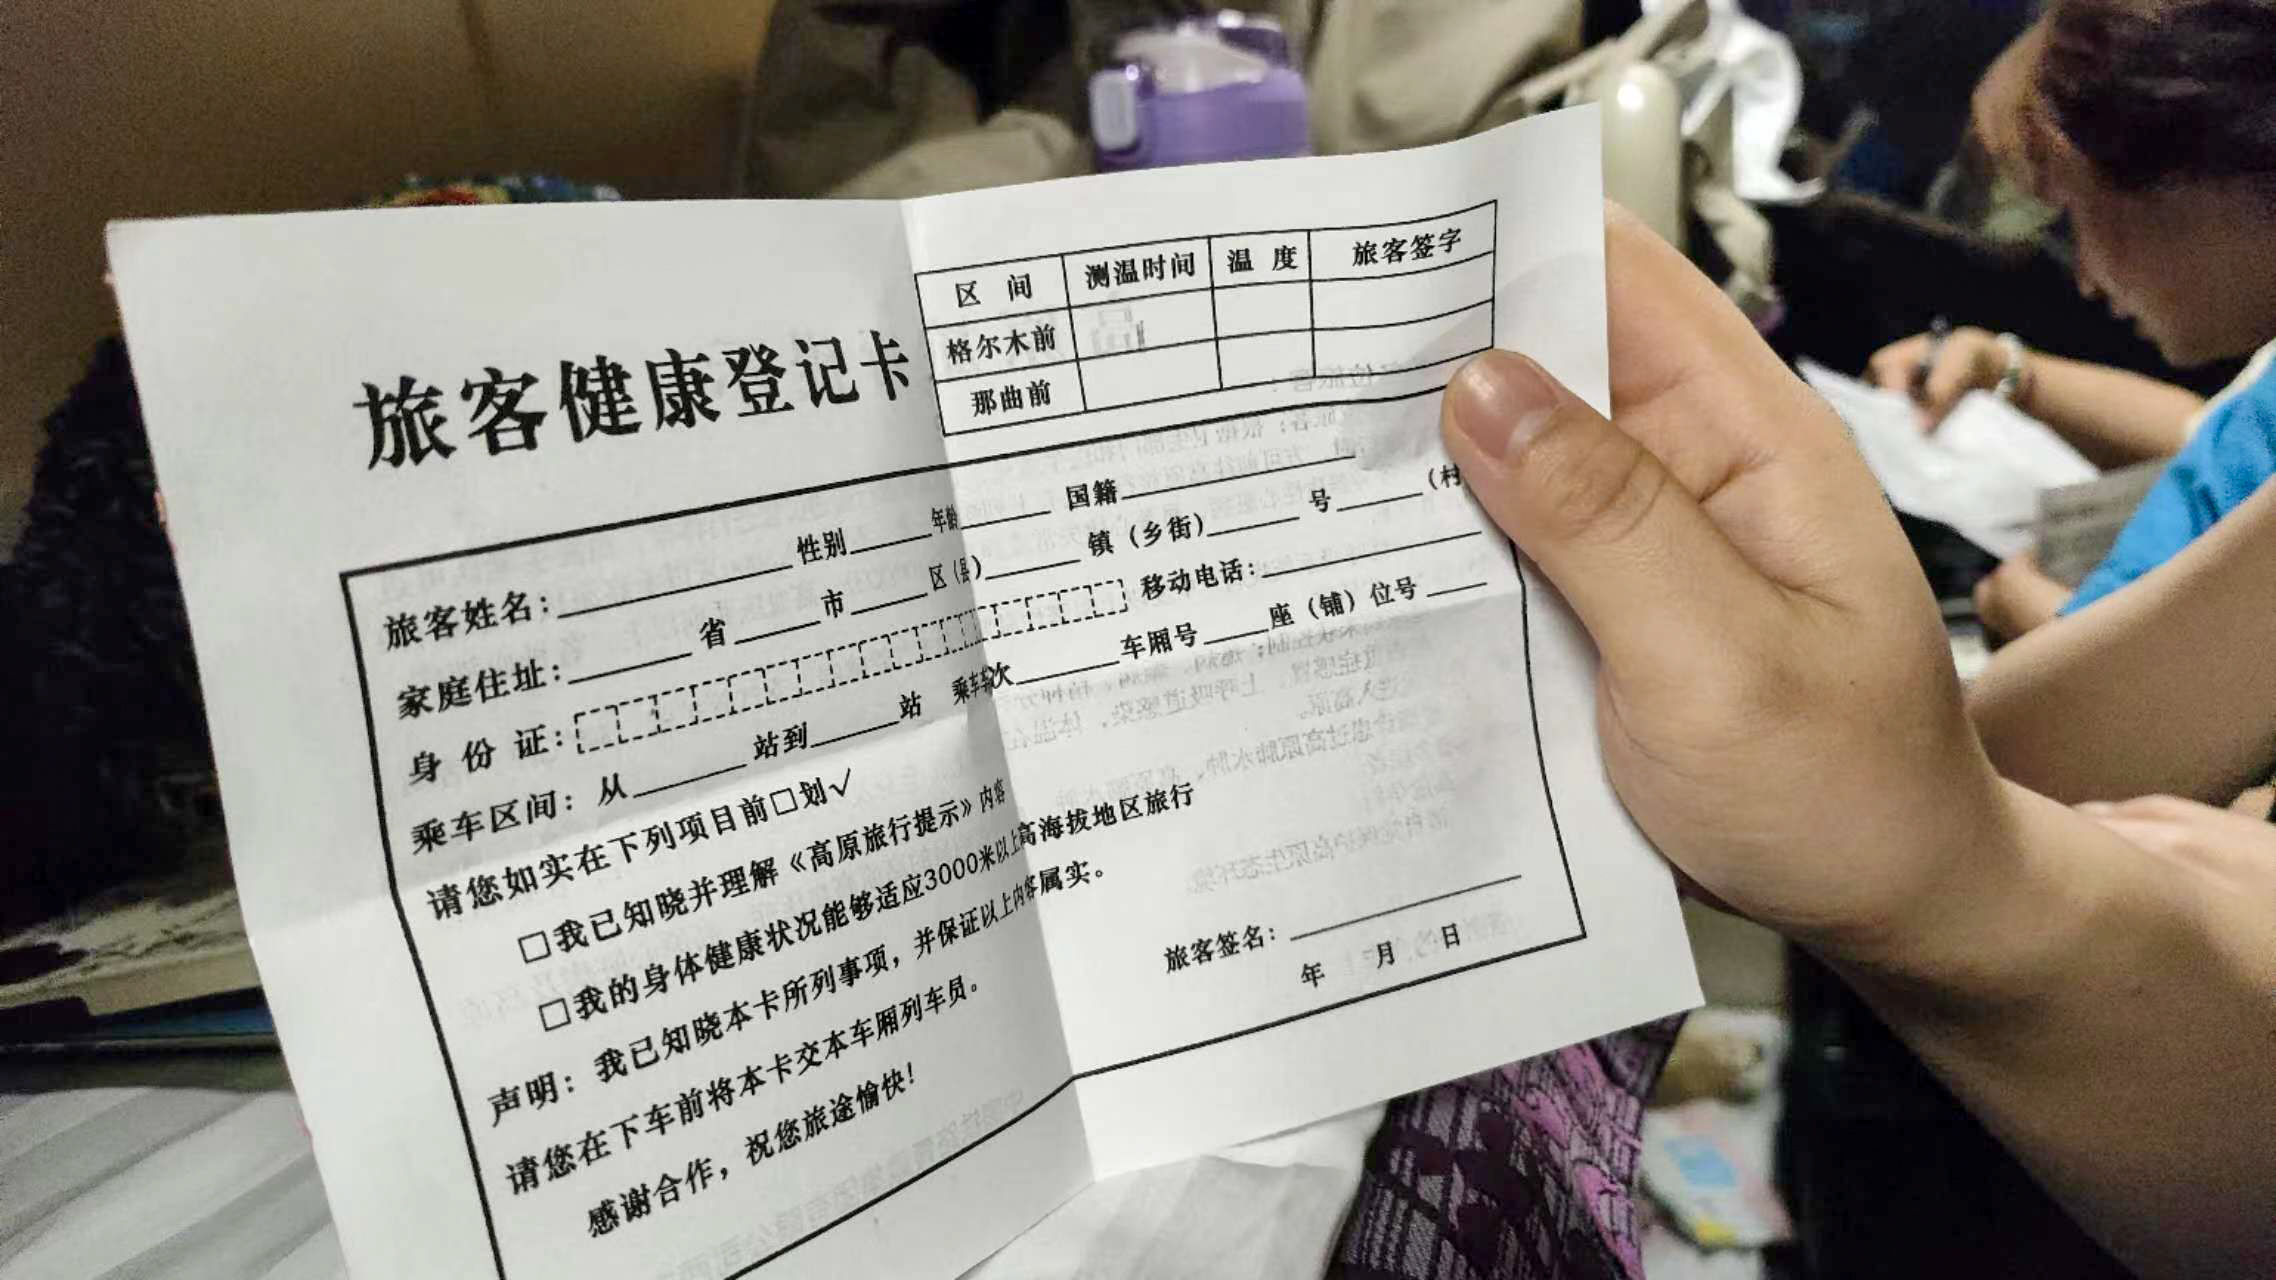 区 间 测温时间 温 度 旅客签字
格尔木前
那曲前
旅客健康登记卡
旅客姓名：______ 性别____ 年龄____ 国籍______
家庭住址：______省____市____区（县）____镇（乡街）____号____（村
身 份 证： 移动电话：______
乘车区间：从______站到______站 乘车车次______车厢号____座（铺）位号____
请您如实在下列项目前□划√
□我已知晓并理解《高原旅行提示》内容
□我的身体健康状况能够适应3000米以上高海拔地区旅行
声明：我已知晓本卡所列事项，并保证以上内容属实。
请您在下车前将本卡交本车厢列车员。
感谢合作，祝您旅途愉快！
旅客签名：______
年 月 日